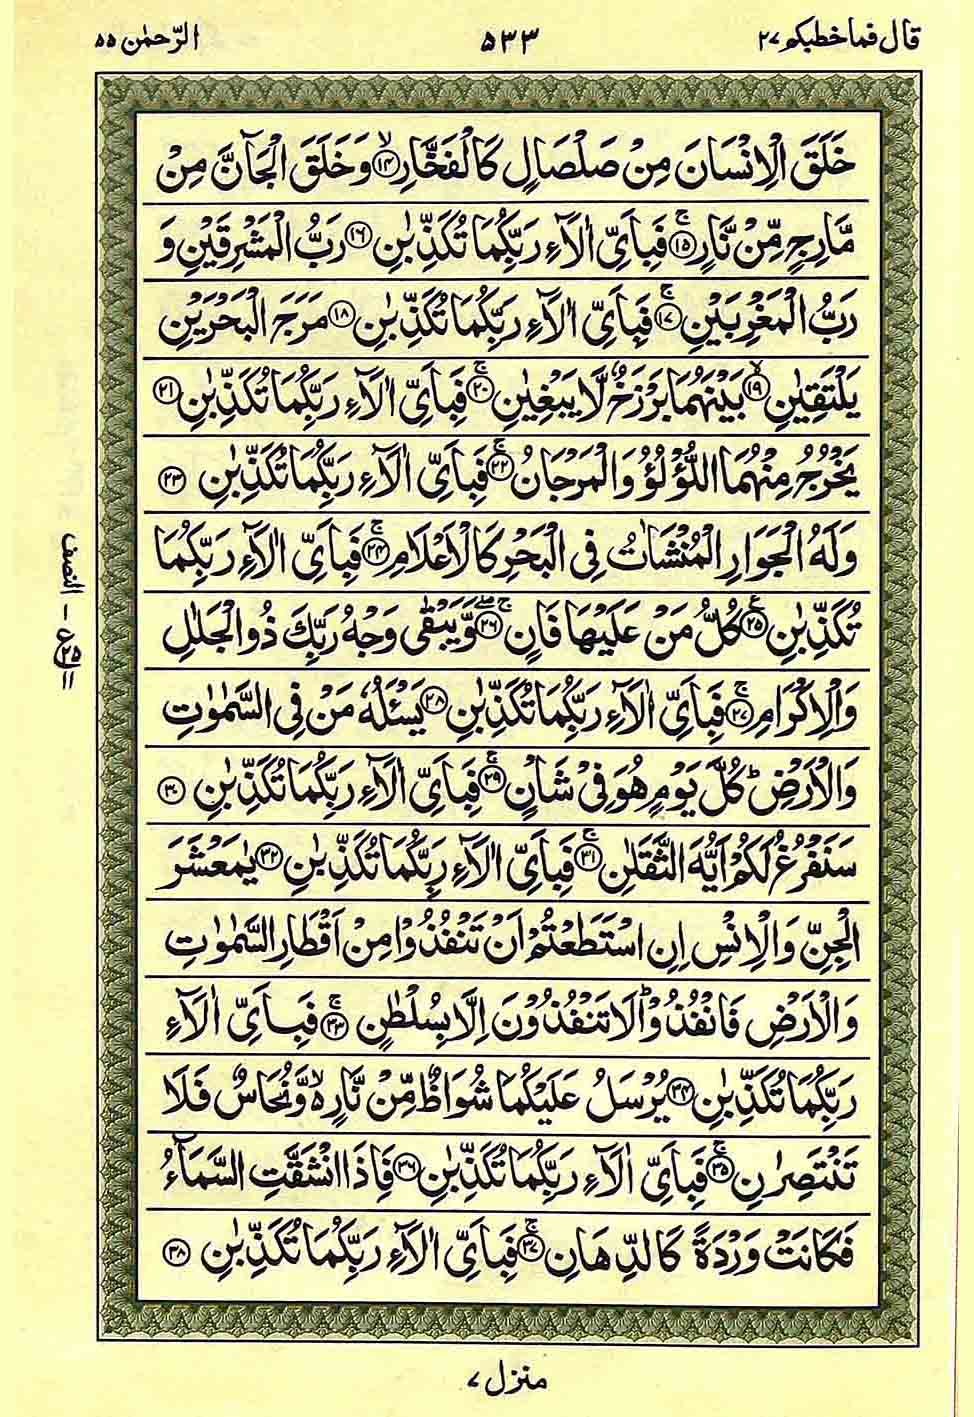 قال فما خطبكم ٢٧ ٥٣٣ الرّحمٰن ٥٥
خَلَقَ الْاِنْسَانَ مِنْ صَلْصَالٍ كَالْفَخَّارِ ۙ‏﴿۱۴﴾ وَخَلَقَ الْجَآنَّ مِنْ
مَّارِجٍ مِّنْ نَّارٍ ۚ‏﴿۱۵﴾ فَبِاَىِّ اٰلَآءِ رَبِّكُمَا تُكَذِّبٰنِ ﴿۱۶﴾ رَبُّ الْمَشْرِقَيْنِ وَ
رَبُّ الْمَغْرِبَيْنِ ۚ‏﴿۱۷﴾ فَبِاَىِّ اٰلَآءِ رَبِّكُمَا تُكَذِّبٰنِ ﴿۱۸﴾ مَرَجَ الْبَحْرَيْنِ
يَلْتَقِيٰنِ ۙ‏﴿۱۹﴾ بَيْنَهُمَا بَرْزَخٌ لَّا يَبْغِيٰنِ ۚ‏﴿۲۰﴾ فَبِاَىِّ اٰلَآءِ رَبِّكُمَا تُكَذِّبٰنِ ﴿۲۱﴾
يَخْرُجُ مِنْهُمَا اللُّؤْلُؤُ وَالْمَرْجَانُ ۚ‏﴿۲۲﴾ فَبِاَىِّ اٰلَآءِ رَبِّكُمَا تُكَذِّبٰنِ ﴿۲۳﴾
وَلَهُ الْجَوَارِ الْمُنْشَاٰتُ فِى الْبَحْرِ كَالْاَعْلَامِ ۚ‏﴿۲۴﴾ فَبِاَىِّ اٰلَآءِ رَبِّكُمَا
تُكَذِّبٰنِ ﴿۲۵﴾ كُلُّ مَنْ عَلَيْهَا فَانٍ ۚۖ‏﴿۲۶﴾ وَّيَبْقٰى وَجْهُ رَبِّكَ ذُو الْجَلٰلِ
وَالْاِكْرَامِ ۚ‏﴿۲۷﴾ فَبِاَىِّ اٰلَآءِ رَبِّكُمَا تُكَذِّبٰنِ ﴿۲۸﴾ يَسْئَلُهٗ مَنْ فِى السَّمٰوٰتِ
وَالْاَرْضِ ؕ كُلَّ يَوْمٍ هُوَ فِىْ شَاْنٍ ۚ‏﴿۲۹﴾ فَبِاَىِّ اٰلَآءِ رَبِّكُمَا تُكَذِّبٰنِ ﴿۳۰﴾
سَنَفْرُغُ لَكُمْ اَيُّهَ الثَّقَلٰنِ ۚ‏﴿۳۱﴾ فَبِاَىِّ اٰلَآءِ رَبِّكُمَا تُكَذِّبٰنِ ﴿۳۲﴾ يٰمَعْشَرَ
الْجِنِّ وَالْاِنْسِ اِنِ اسْتَطَعْتُمْ اَنْ تَنْفُذُوْا مِنْ اَقْطَارِ السَّمٰوٰتِ
وَالْاَرْضِ فَانْفُذُوْا ؕ لَا تَنْفُذُوْنَ اِلَّا بِسُلْطٰنٍ ۚ‏﴿۳۳﴾ فَبِاَىِّ اٰلَآءِ
رَبِّكُمَا تُكَذِّبٰنِ ﴿۳۴﴾ يُرْسَلُ عَلَيْكُمَا شُوَاظٌ مِّنْ نَّارٍ ۙ۬ وَّنُحَاسٌ فَلَا
تَنْتَصِرٰنِ ۚ‏﴿۳۵﴾ فَبِاَىِّ اٰلَآءِ رَبِّكُمَا تُكَذِّبٰنِ ﴿۳۶﴾ فَاِذَا انْشَقَّتِ السَّمَآءُ
فَكَانَتْ وَرْدَةً كَالدِّهَانِ ۚ‏﴿۳۷﴾ فَبِاَىِّ اٰلَآءِ رَبِّكُمَا تُكَذِّبٰنِ ﴿۳۸﴾
النصف
منزل ٧